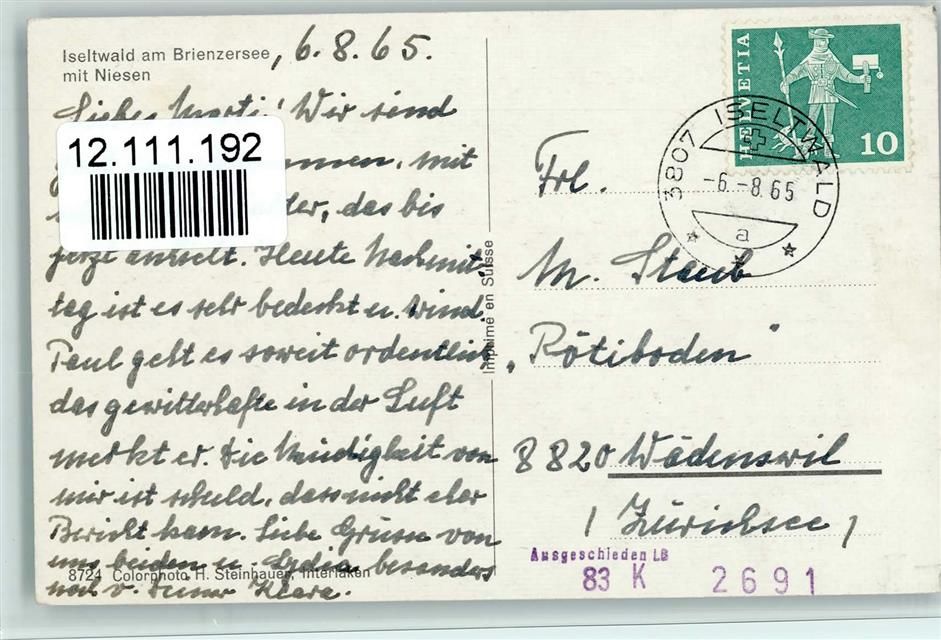 Iseltwald am Brienzersee
mit Niesen
, 6.8.65.
Liebes Marti! Wir sind
12.111.192
mit
das bis
jetzt anhielt. Heute Nachmit-
tag ist es sehr bedeckt u. Wind.
Paul geht es soweit ordentlich
das gewitterhafte in der Luft
merkt er. Die Müdigkeit von
mir ist schuld, dass nicht eher
Bericht kam. Liebe Grüsse von
uns beiden u. Lydia besonders
noch v. Deiner Klara.
8724 Colorphoto H. Steinhauer, Interlaken
Imprimé en Suisse
HELVETIA
10
3807 ISELTWALD
-6.-8.65
a
Frl.
M. Staub
"Rötiboden"
8820 Wädenswil
(Zürichsee)
Ausgeschieden LB
83 K 2691